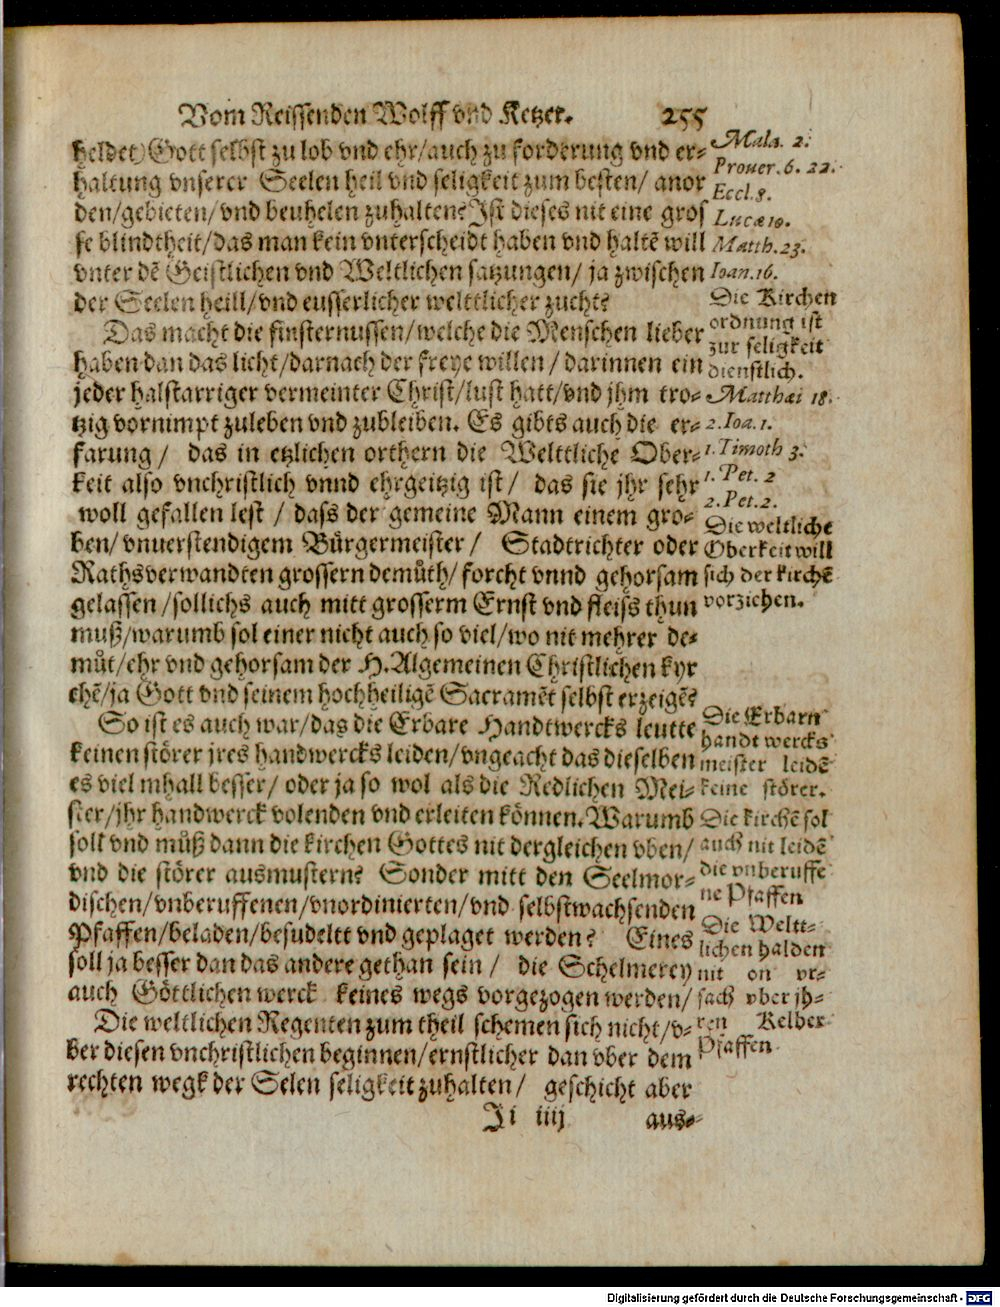 Vom Reissenden Wolff vnd Ketzer. 255
heldet) Gott selbst zu lob vnd ehr/auch zu forderung vnd er-
haltung vnserer Seelen heil vnd seligkeit zum besten/ anor
den/gebieten/vnd beuhelen zuhalten? Ist dieses nit eine gros
se blindtheit/das man kein vnterscheidt haben vnd haltē will
vnter dē Geistlichen vnd Weltlichen satzungen/ ja zwischen
der Seelen heill/vnd eusserlicher welttlicher zucht?
Das macht die finsternussen/welche die Menschen lieber
haben dan das licht/darnach der freye willen/ darinnen ein
jeder halstarriger vermeinter Christ/lust hatt/vnd jhm tro-
tzig vornimpt zuleben vnd zubleiben. Es gibts auch die er-
farung/ das in etzlichen orthern die Welttliche Ober-
keit also vnchristlich vnnd ehrgeitzig ist/ das sie jhr sehr
woll gefallen lest / dass der gemeine Mann einem gro-
ben/ vnuerstendigem Bürgermeister/ Stadtrichter oder
Rathsverwandten grossern demůth/ forcht vnnd gehorsam
gelassen /sollichs auch mitt grosserm Ernst vnd fleiss thun
muß/warumb sol einer nicht auch so viel/wo nit mehrer de-
můt/ehr vnd gehorsam der H. Algemeinen Christlichen kyr
chē/ja Gott vnd seinem hochheiligē Sacramēt selbst erzeigē?
So ist es auch war/das die Erbare Handtwercks leutte
keinen störer jres handwercks leiden/vngeacht das dieselben
es viel mhall besser/ oder ja so wol als die Redlichen Mei-
ster/jhr handwerck volenden vnd erleiten können. Warumb
soll vnd můß dann die kirchen Gottes nit dergleichen vben/
vnd die störer ausmustern? Sonder mitt den Seelmor-
dischen/vnberuffenen/vnordinierten/vnd selbstwachsenden
Pfaffen/beladen/besudeltt vnd geplaget werden? Eines
soll ja besser dan das andere gethan sein/ die Schelmerey
auch Göttlichen werck keines wegs vorgezogen werden/
Die weltlichen Regenten zum theil schemen sich nicht/v-
ber diesen vnchristlichen beginnen/ernstlicher dan vber dem
rechten wegk der Selen seligkeit zuhalten/ geschicht aber
Ii iiij aus-
Mala. 2.
Prouer. 6. 22.
Eccl. 8.
Lucæ 10.
Matth. 23.
Ioan. 16.
Die Kirchen
ordnung ist
zur seligkeit
dienstlich.
Matthæi 18.
2. Ioa. 1.
1. Timoth 3.
1. Pet. 2
2. Pet. 2.
Die weltliche
Oberkeit will
sich der kirchē
vorziehen.
Die Erbarn
handt wercks
meister leidē
keine störer.
Die kirchē sol
auch nit leidē
die vnberuffe
ne Pfaffen
Die Weltt-
lichen halden
nit on vr-
sach vber jh-
ren Kelber
Pfaffen.
Digitalisierung gefördert durch die Deutsche Forschungsgemeinschaft - DFG